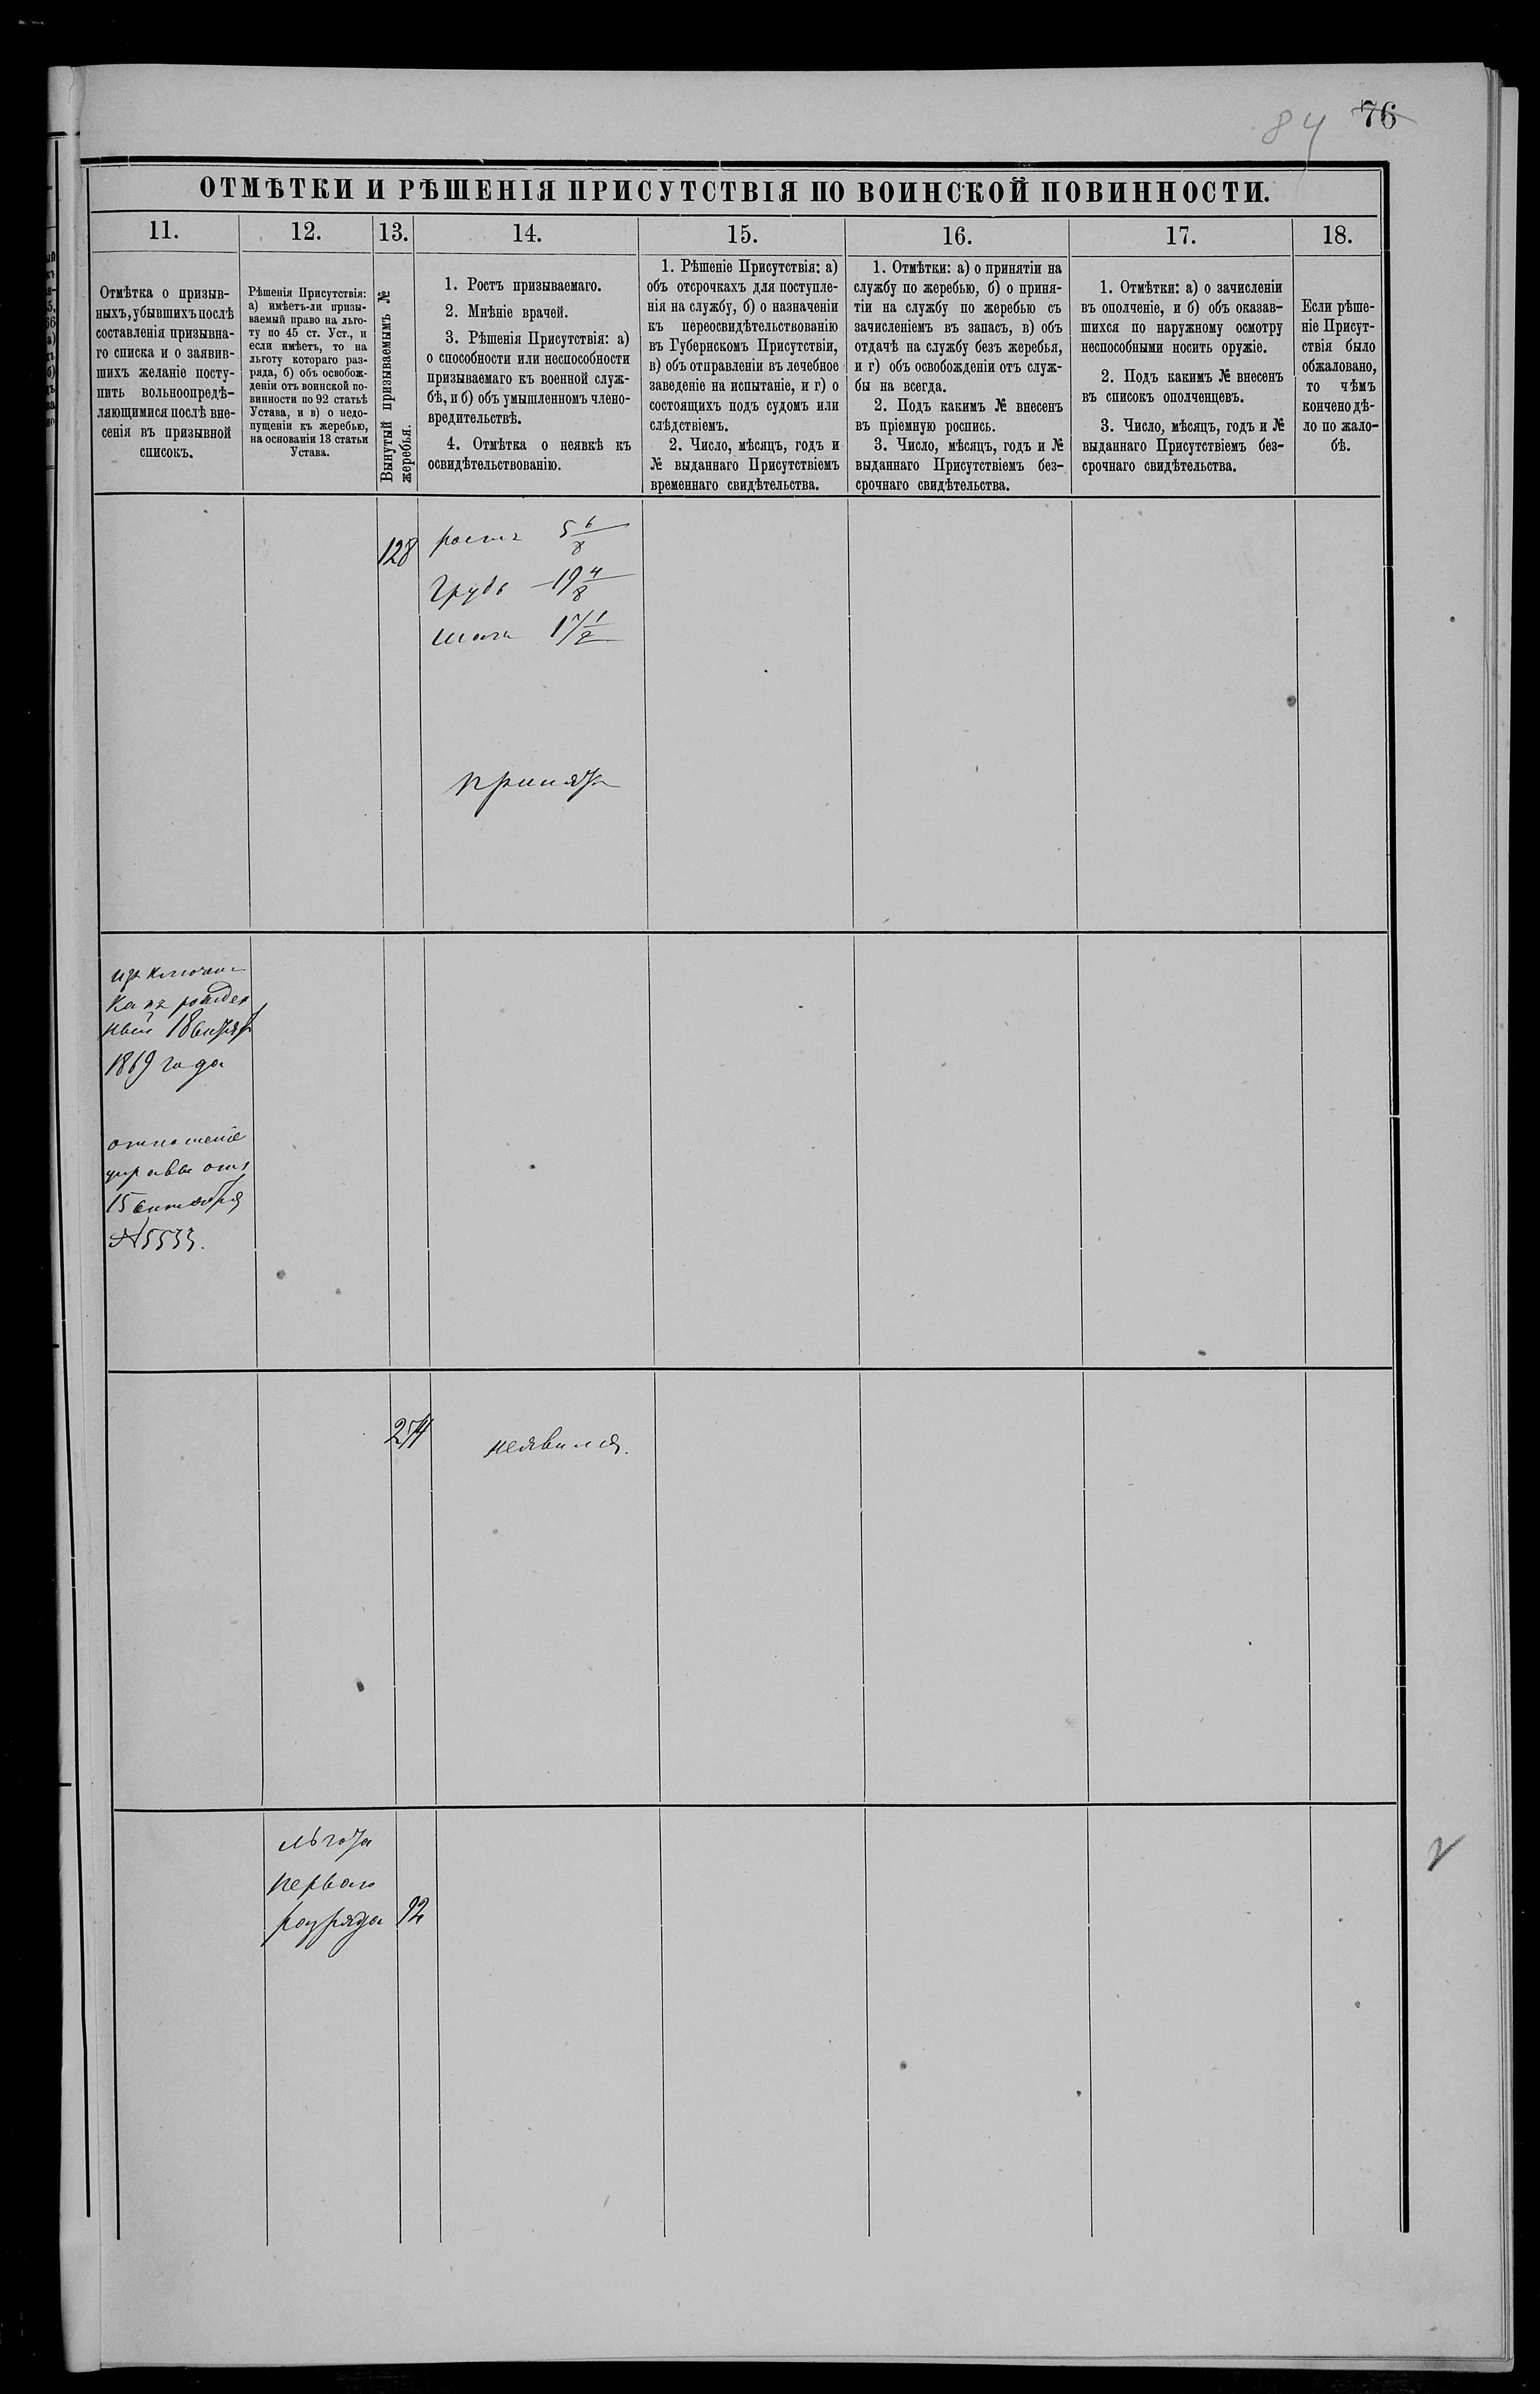 84 76
ОТМѢТКИ И РѢШЕНІЯ ПРИСУТСТВІЯ ПО ВОИНСКОЙ ПОВИННОСТИ.
11.
Отмѣтка о призыв-
ныхъ, убывшихъ послѣ
составленія призывна-
го списка и о заявив-
шихъ желаніе посту-
пить вольноопредѣ-
ляющимися послѣ вне-
сенія въ призывной
списокъ.
12.
Рѣшенія Присутствія:
а) имѣетъ-ли призы-
ваемый право на льго-
ту по 45 ст. Уст., и
если имѣетъ, то на
льготу котораго раз-
ряда, б) объ освобож-
деніи отъ воинской по-
винности по 92 статьѣ
Устава, и в) о недо-
пущеніи къ жеребью,
на основаніи 13 статьи
Устава.
13.
Вынутый призываемымъ №
жеребья.
14.
1. Ростъ призываемаго.
2. Мнѣніе врачей.
3. Рѣшенія Присутствія: а)
о способности или неспособности
призываемаго къ военной служ-
бѣ, и б) объ умышленномъ члено-
вредительствѣ.
4. Отмѣтка о неявкѣ къ
освидѣтельствованію.
15.
1. Рѣшеніе Присутствія: а)
объ отсрочкахъ для поступле-
нія на службу, б) о назначеніи
къ переосвидѣтельствованію
въ Губернскомъ Присутствіи,
в) объ отправленіи въ лечебное
заведеніе на испытаніе, и г) о
состоящихъ подъ судомъ или
слѣдствіемъ.
2. Число, мѣсяцъ, годъ и
№ выданнаго Присутствіемъ
временнаго свидѣтельства.
16.
1. Отмѣтки: а) о принятіи на
службу по жеребью, б) о приня-
тіи на службу по жеребью съ
зачисленіемъ въ запасъ, в) объ
отдачѣ на службу безъ жеребья,
и г) объ освобожденіи отъ служ-
бы на всегда.
2. Подъ какимъ № внесенъ
въ пріемную роспись.
3. Число, мѣсяцъ, годъ и №
выданнаго Присутствіемъ без-
срочнаго свидѣтельства.
17.
1. Отмѣтки: а) о зачисленіи
въ ополченіе, и б) объ оказав-
шихся по наружному осмотру
неспособными носить оружіе.
2. Подъ какимъ № внесенъ
въ списокъ ополченцевъ.
3. Число, мѣсяцъ, годъ и №
выданнаго Присутствіемъ без-
срочнаго свидѣтельства.
18.
Если рѣше-
ніе Присут-
ствія было
обжаловано,
то чѣмъ
кончено дѣ-
ло по жало-
бѣ.
128
ростъ 5 6/8
грудь 19 4/8
17 1/2
принятъ
какъ рожден
ный 18
1869 года
отношеніе
управы отъ
15 сентября
№ 5533.
274
неявился.
льгота
перваго
разряда 92